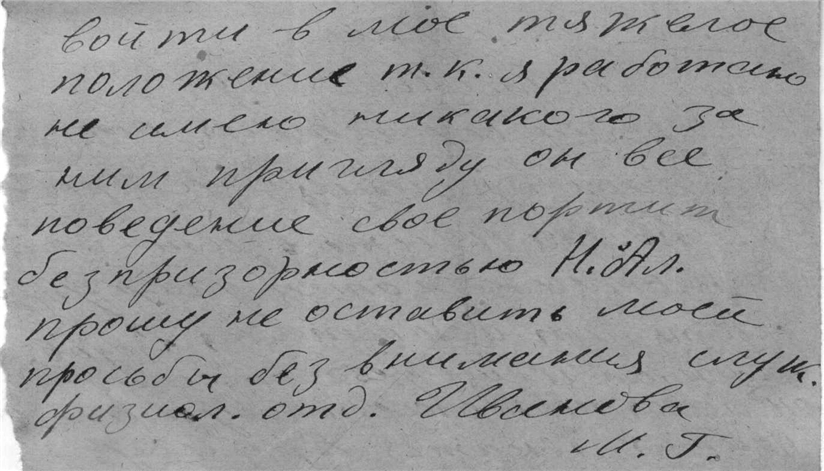 войти в мое тяжелое
положение т.к. я работаю
не имею никакого за
ним пригляду он все
поведение свое портит
безпризорностью Н. Ал.
прошу не оставить моей
просьбы без внимания служ.
физиол. отд. Иванова
М. Г.